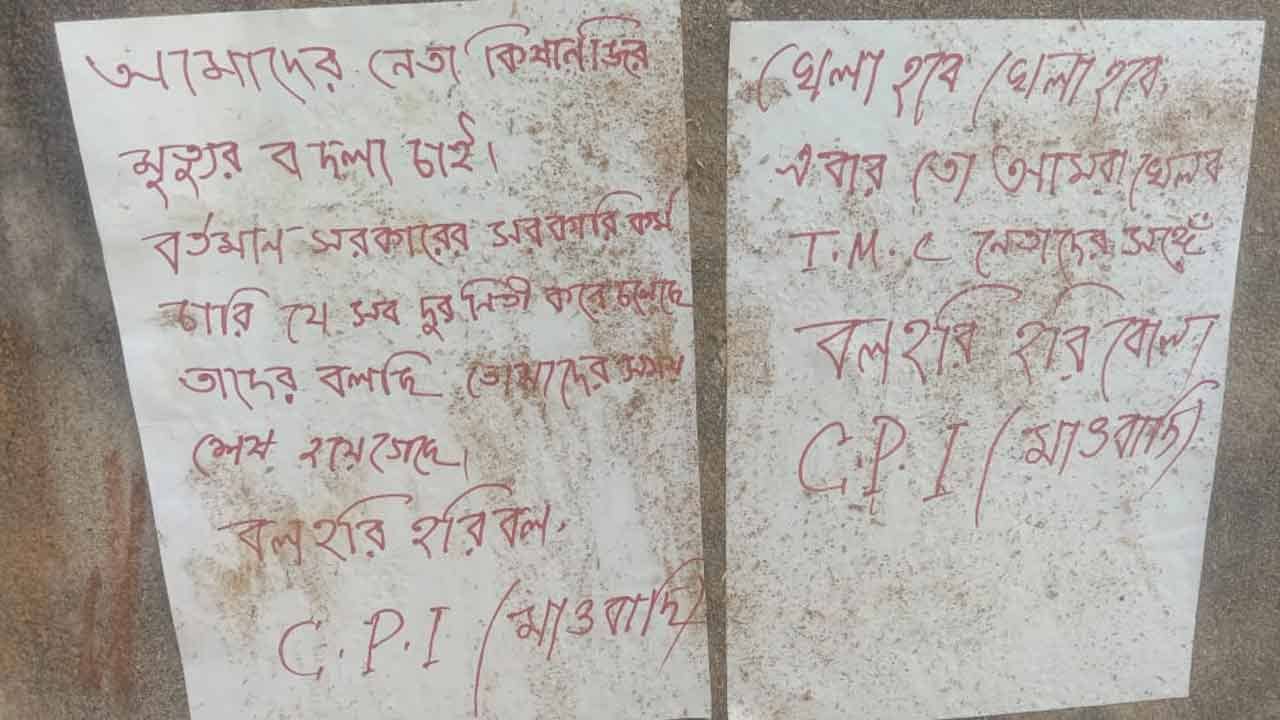 আমাদের নেতা কিষানজির
মৃত্যুর বদলা চাই।
বর্তমান সরকারের সরকারি কর্ম
চারি যে সব দুর নিতী করে চলেছে
তাদের বলছি তোমাদের সময়
শেষ হয়ে গেছে।
বল হরি হরি বল,
C.P.I (মাওবাদি)
খেলা হবে খেলা হবে,
এবার তো আমরা খেলব
T.M.C নেতাদের সঙ্গে
বল হরি হরি বোল
C.P.I (মাওবাদি)